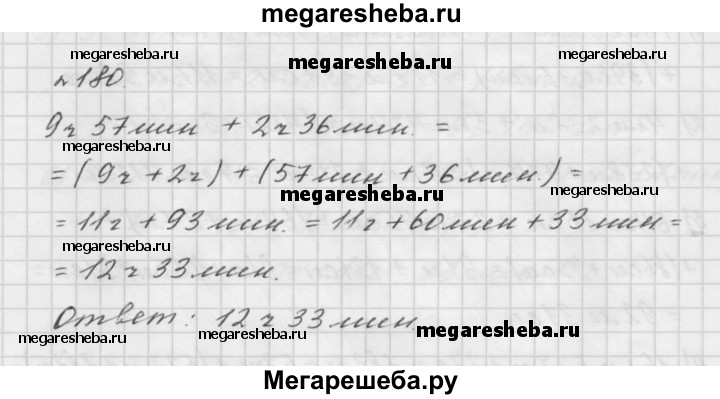 megaresheba.ru
megaresheba.ru megaresheba.ru megaresheba.ru
№180.
9ч 57мин + 2ч 36мин. =
=(9ч+2ч)+(57мин+36мин.)=
megaresheba.ru megaresheba.ru
=11ч+93мин.=11ч+60мин+33мин=
megaresheba.ru
=12ч 33мин.
Ответ: 12ч 33мин.
megaresheba.ru megaresheba.ru megaresheba.ru
Мегарешеба.ру